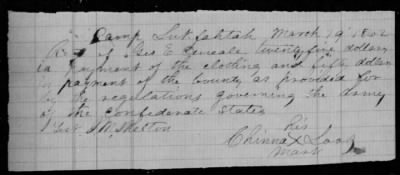 Camp Luk,faktah March 19' 1862
Rec'd of Geo E. Deneale twenty five dollars
in payment of the clothing and fifty dollars
in payment of the bounty as provided for
by the regulations governing the army
of the Confederate States
Test J M Shelton
his
Chinna X
mark